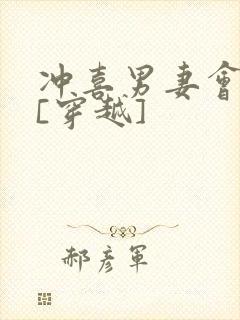 冲喜男妻會
[穿越]
郝彦軍